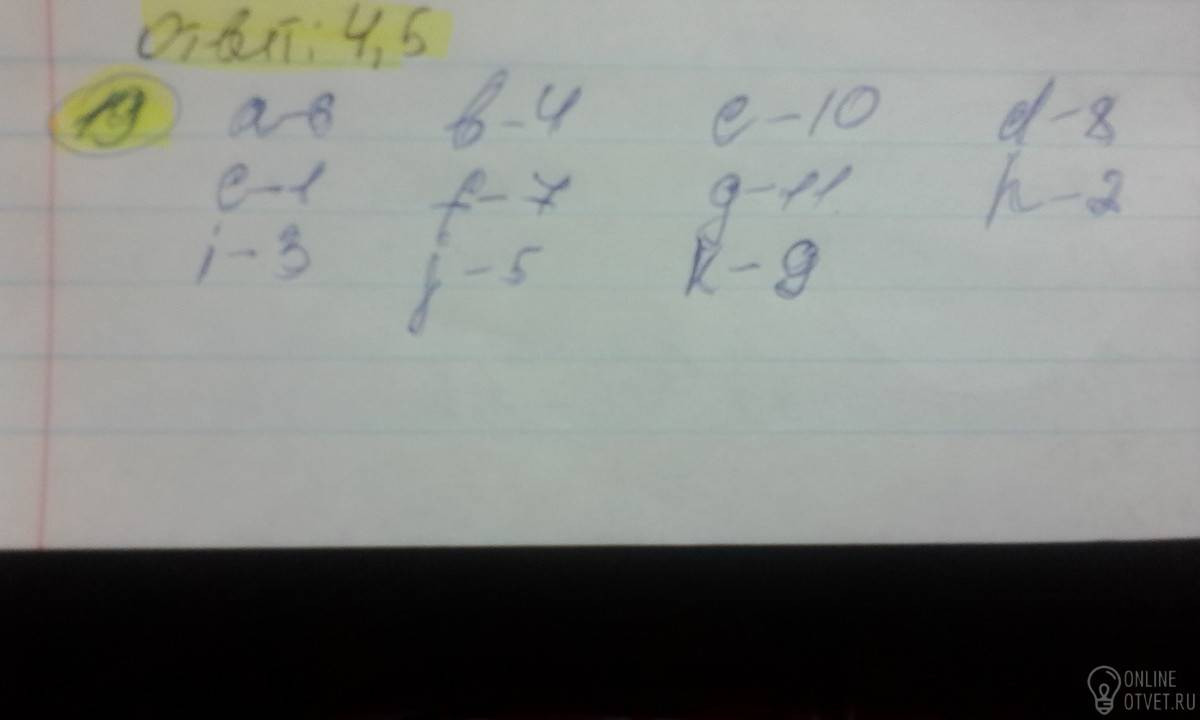 Ответ: 4,5
19 a-6 b-4 c-10 d-8
e-1 f-7 g-11 h-2
i-3 j-5 k-9
ONLINE
OTVET.RU